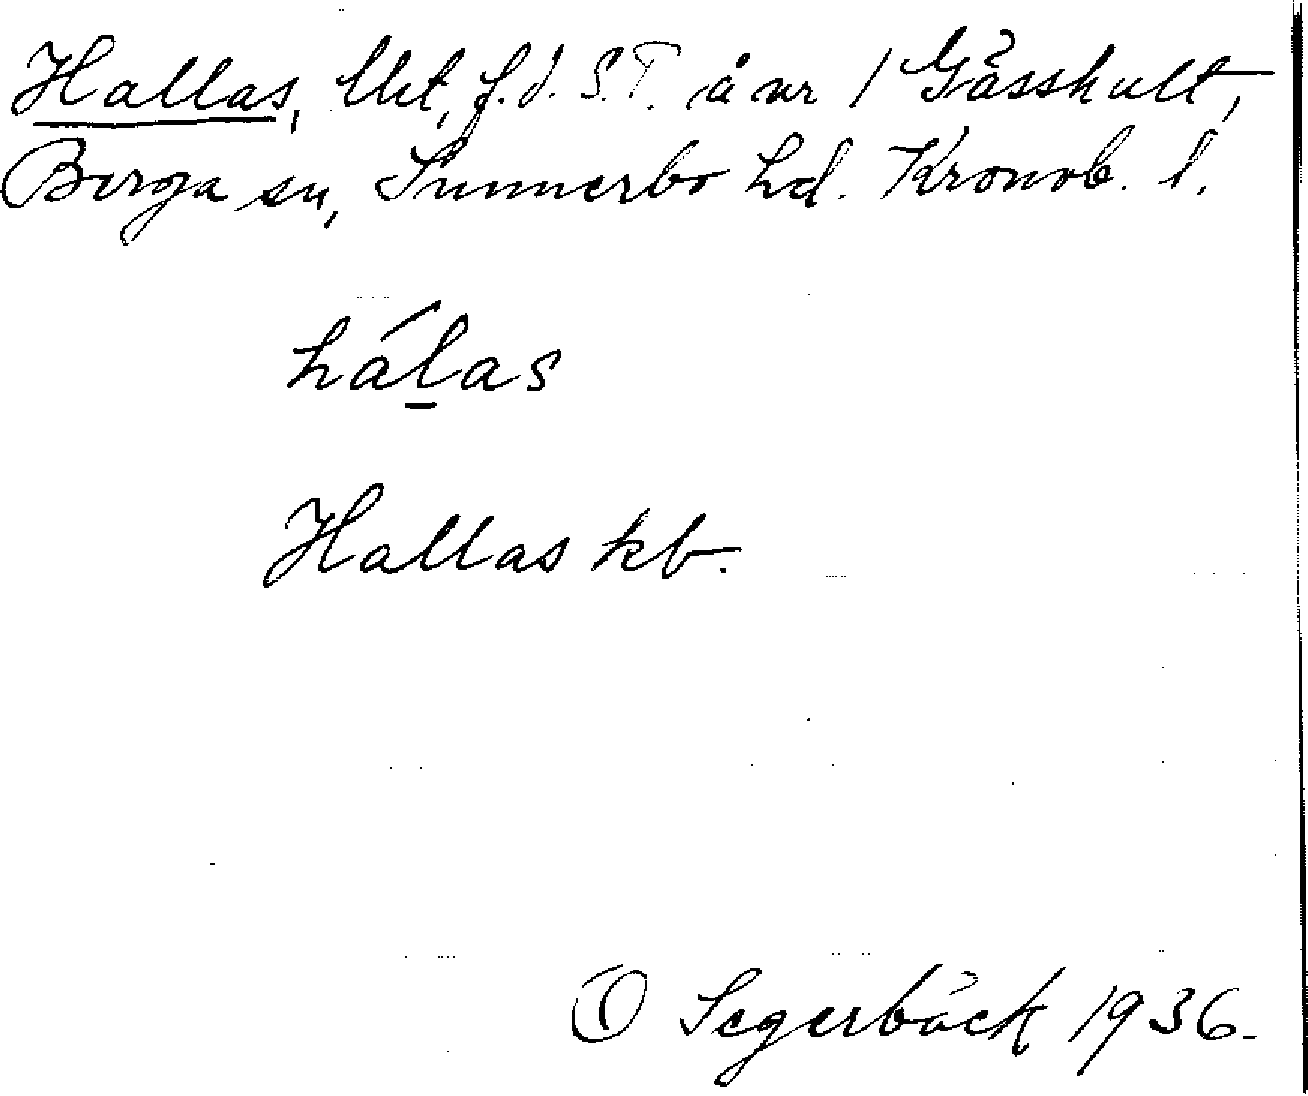 Hallas, lht, f.d. S.T. å nr 1 Gåsshult,
Berga sn, Sunnerbo hd. Kronob. l.
hálas
Hallas kb.
O Segerbäck 1936.